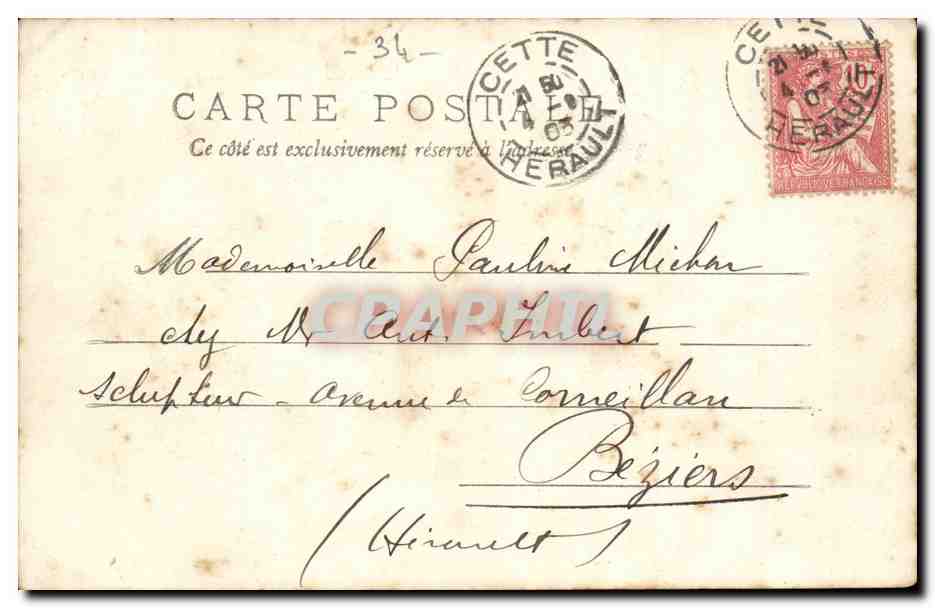 - 34 -
CARTE POSTALE
Ce côté est exclusivement réservé à l'adresse
CETTE
21 50
4 - 8
03
HERAULT
CETTE
21 50
4
03
HERAULT
15
REPUBLIQUE FRANÇAISE
Mademoiselle Pauline Michau
chez Mr Ant. Imbert
CPAPHIL
sculpteur - avenue de Corneillan
Béziers
(Hérault)